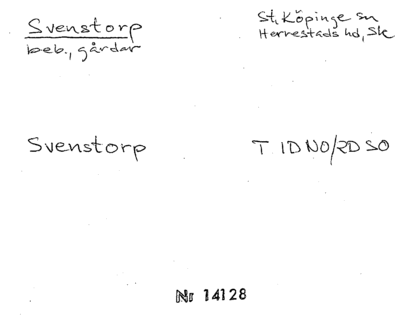 Svenstorp
St. Köpinge sn
beb., gårdar
Herrestads hd, Sk
Svenstorp
T 1D NO/2D SO
Nr 14128